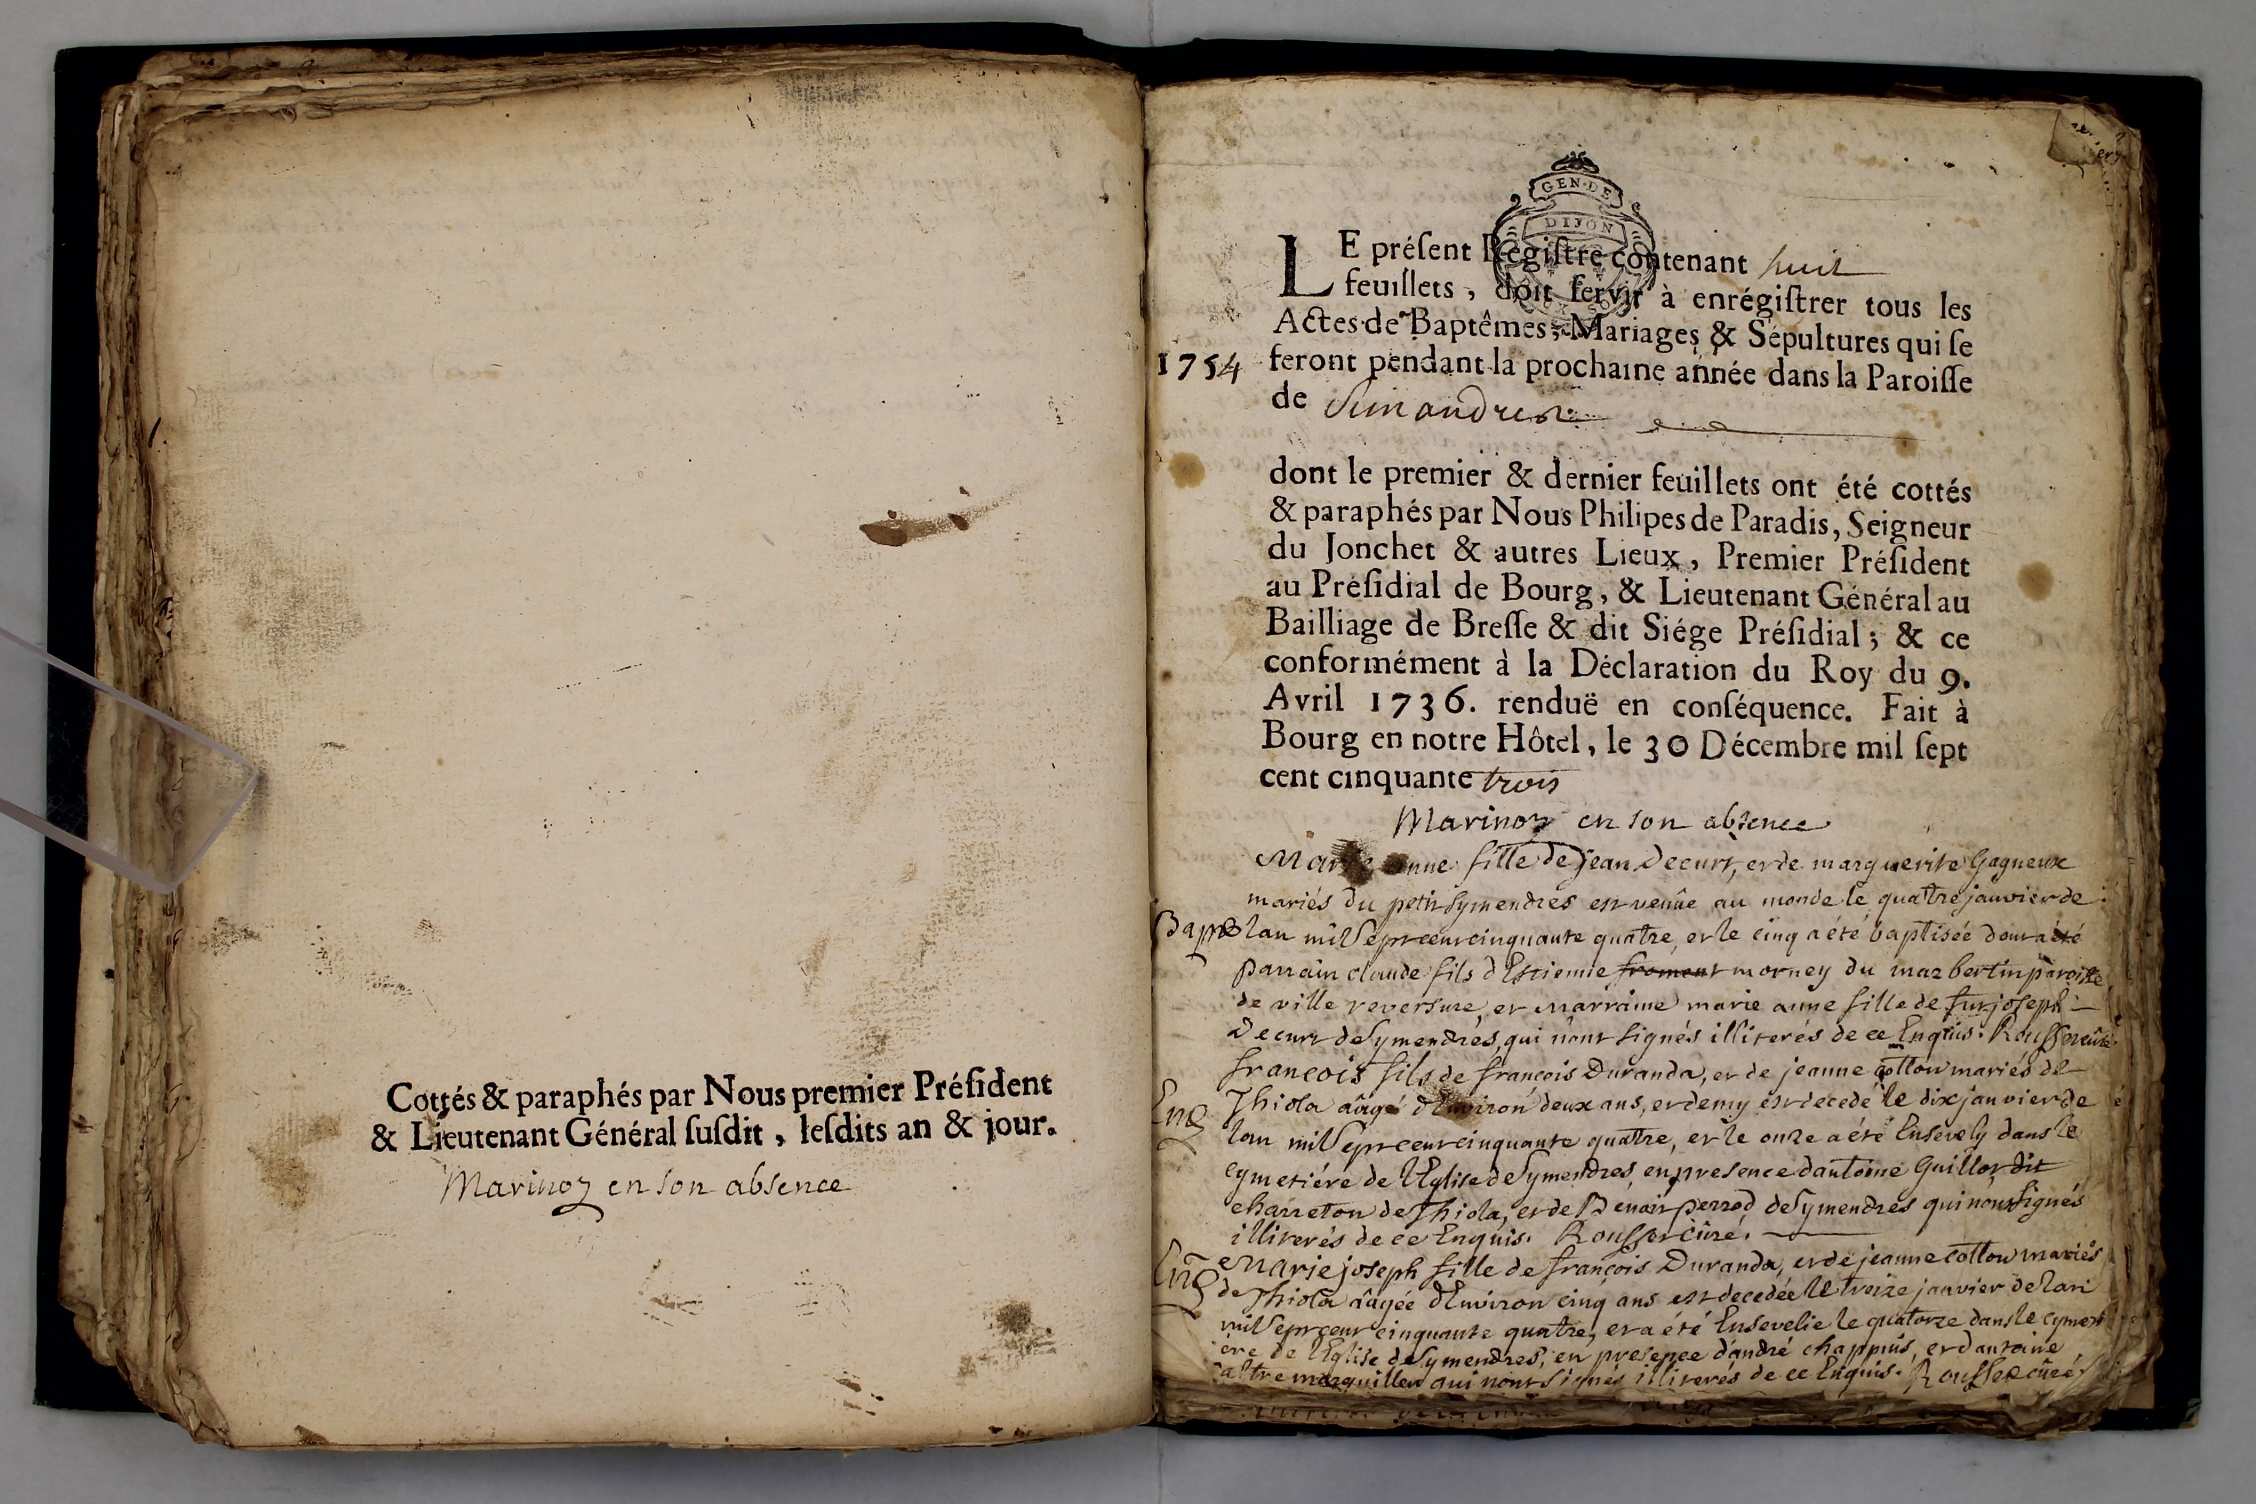 Cottés & paraphés par Nous premier Préſident
& Lieutenant Général ſuſdit, leſdits an & jour.
Marinoz en son absence
GEN·DE
DIJON
LE préſent Régiſtre contenant huit
feuillets, doit ſervir à enrégiſtrer tous les
Actes de Baptêmes, Mariages & Sépultures qui ſe
1754 feront pendant la prochaine année dans la Paroiſſe
de Simandres
dont le premier & dernier feuillets ont été cottés
& paraphés par Nous Philipes de Paradis, Seigneur
du Jonchet & autres Lieux, Premier Préſident
au Préſidial de Bourg, & Lieutenant Général au
Bailliage de Breſſe & dit Siége Préſidial; & ce
conformément à la Déclaration du Roy du 9.
Avril 1736. renduë en conſéquence. Fait à
Bourg en notre Hôtel, le 30 Décembre mil ſept
cent cinquante trois
Marinoz en son absence
Marie anne fille de jean Decurt, et de marguerite Gagneux
mariés du petit symendres est venüe au monde le quatre janvier de
Bapt lan mil sept cent cinquante quatre, et le cinq a été baptisée dont a été
parrain claude fils d'Estienne froment morney du maz bertin paroisse
de ville reversure, et marraine marie anne fille de fut joseph
Decurt de Symendres, qui n'ont signés illiterés de ce Enquis. Rousset curé
francois fils de francois Duranda, et de jeanne cottow mariés de
Ens Thiola âagé d'Environ deux ans, et demy est decedé le dix janvier de
lan mil sept cent cinquante quatre, et le onze a été Ensevely dans le
cymetiére de l'Eglise de Symendres, en presence d'antoine Guillot dit
charreton de Thiola, et de Benoit perrod de Symendres qui n'ont signés
illiterés de ce Enquis. Rousset curé.
Ens Marie joseph fille de francois Duranda, et de jeanne cottow mariés
de Thiola âagée d'Environ cinq ans est decedée le treize janvier de lan
mil sept cent cinquante quatre, et a été Ensevelie le quatorze dans le cymeti
ere de l'Eglise de Symendres, en presence d'andré chappuis, et d'antoine
marguiller qui n'ont signés illiterés de ce Enquis. Rousset curé.